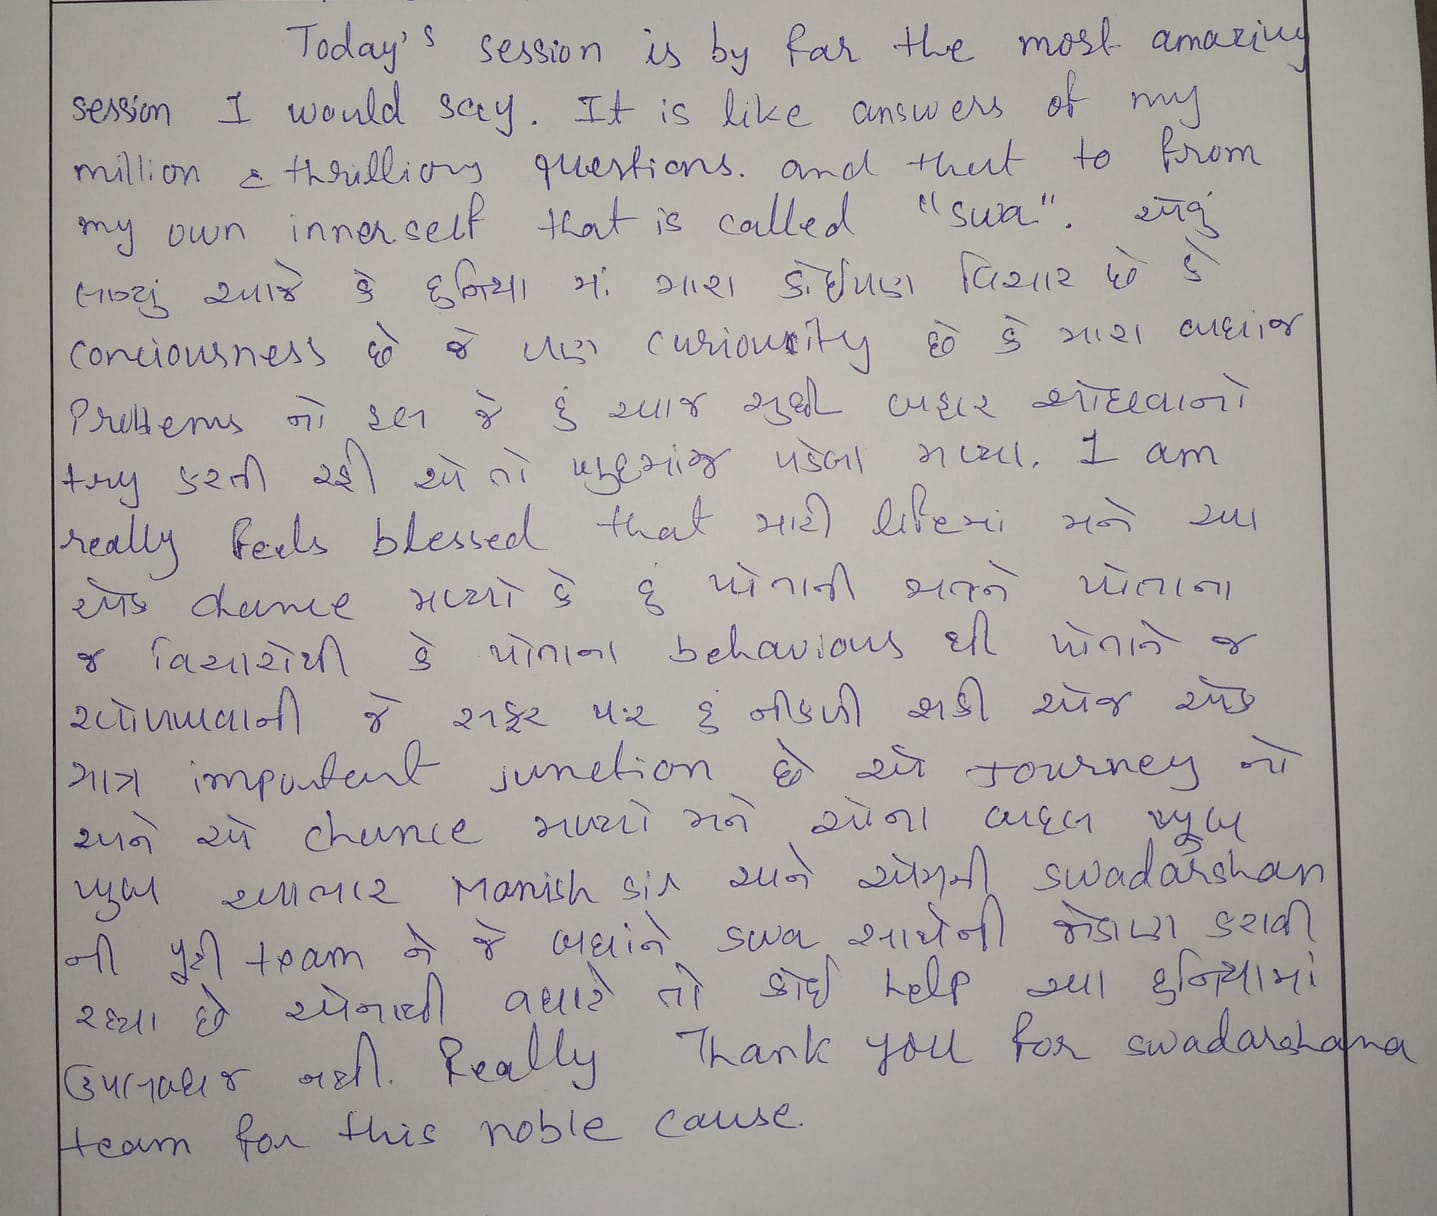 Today's session is by far the most amazing
session I would say. It is like answers of my
million & thrillions questions. and that to from
my own innerself that is called "swa". એવું
લાગ્યું આજે કે દુનિયા માં મારા કોઈપણ વિચાર છે કે
conciousness છે જે પણ curiousity છે કે મારા બધાંજ
Problems નો હલ જે હું આજ સુધી બહાર શોધવાનો
try કરતી રહી એ તો ખુદમાંજ પડેલા મળ્યા. I am
really feels blessed that મારી લાઈફમાં મને આ
એક chance મળ્યો કે હું પોતાની જાતને પોતાના
જ વિચારોથી કે પોતાના behavious થી પોતાને જ
ઓળખવાની જે સફર પર હું નીકળી શકી એજ એક
માત્ર important junction છે એ Journey નો
અને એ chance મળ્યો મને એના બદલ ખુબ
ખુબ આભાર Manish sir અને એમની swadarshan
ની પૂરી team ને જે બધાંને swa સાથેની જોડાણ કરાવી
રહ્યા છે એનાથી વધારે તો કોઈ help આ દુનિયામાં
ઉપલબ્ધ જ નથી. Really Thank you for swadarshana
team for this noble cause.